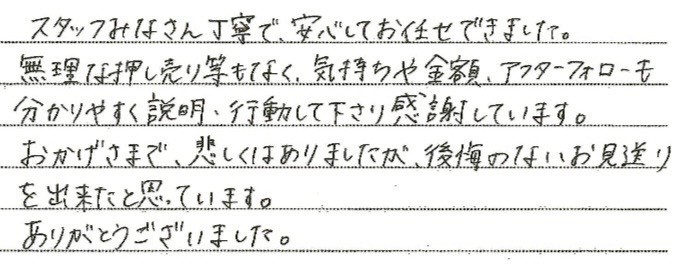 スタッフみなさん丁寧で、安心してお任せできました。
無理な押し売り等もなく、気持ちや金額、アフターフォローも
分かりやすく説明・行動して下さり感謝しています。
おかげさまで、悲しくはありましたが、後悔のないお見送り
を出来たと思っています。
ありがとうございました。